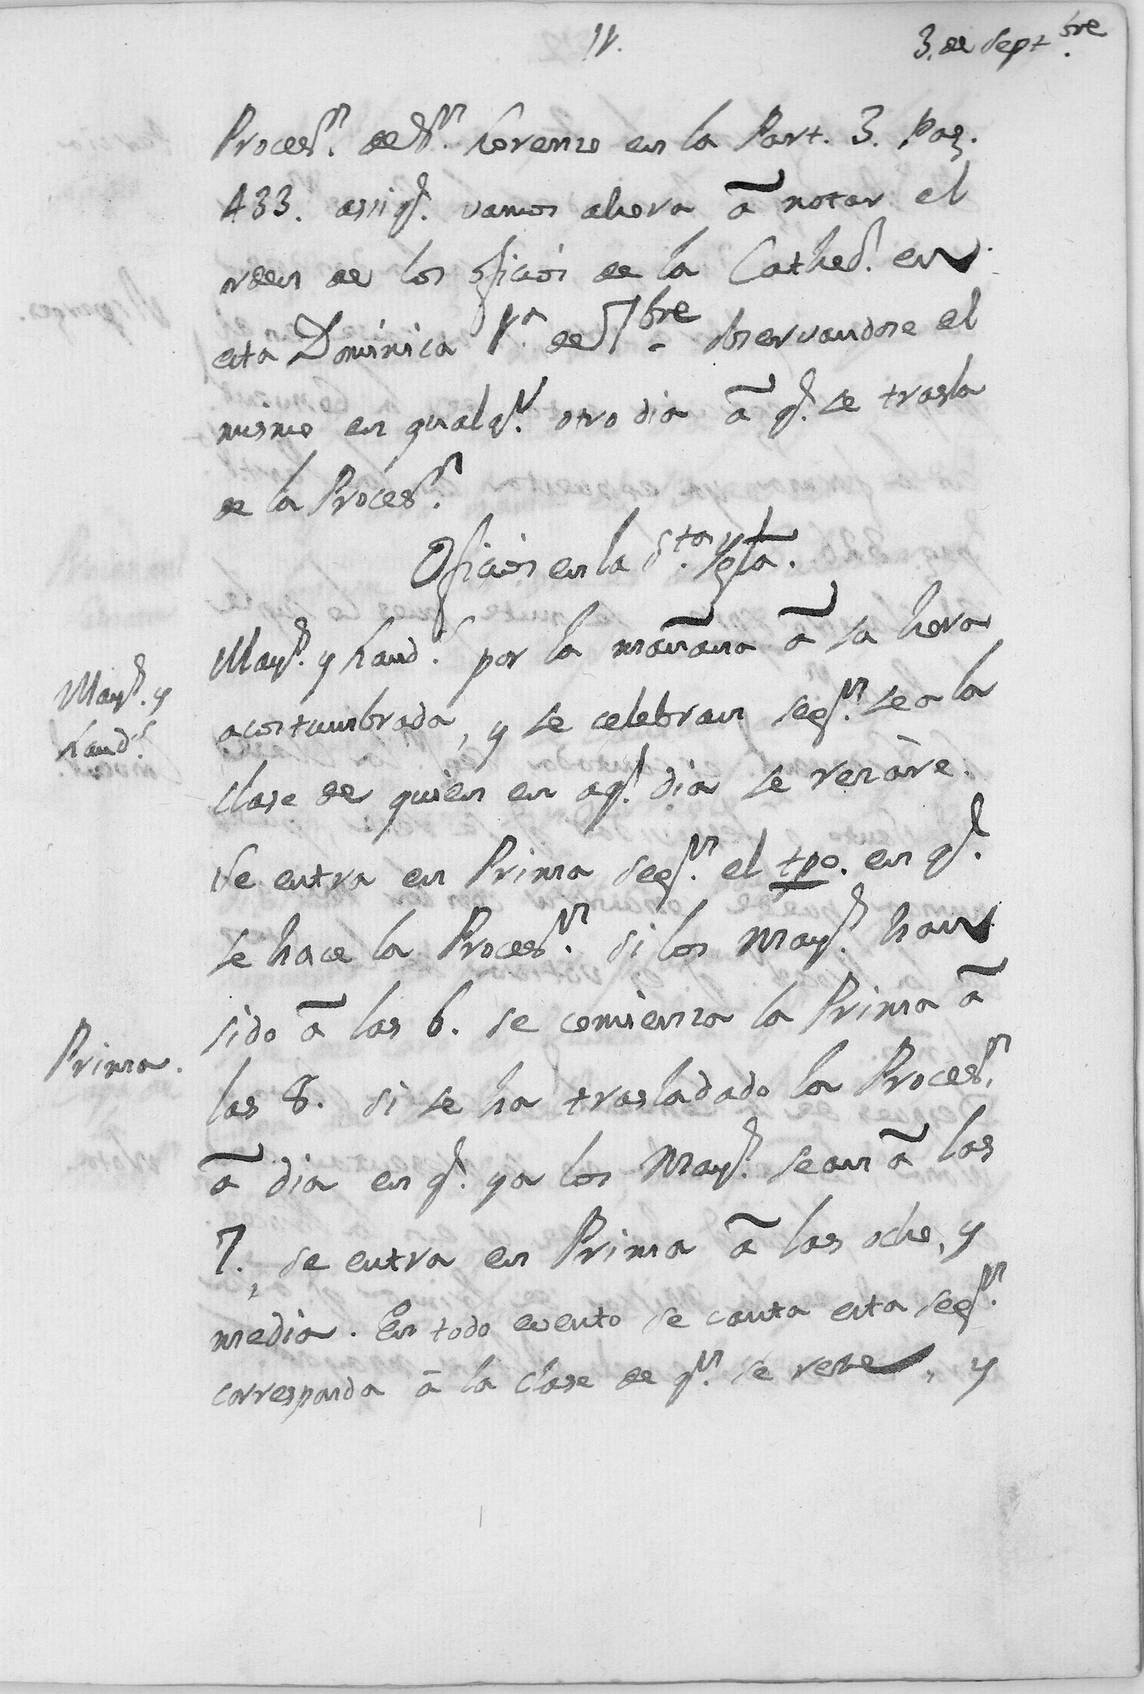 11.
3. de Septbre.
Procesn. de Sn. Lorenzo en la Part. 3. Pag.
433. assiq. vamos ahora â notar el
orden de los oficios de la Cathed. en
esta Dominica 1a. de 7bre. observandose el
mismo en qualqr. otro dia â q. se trasla
de la Procesn.
Oficios en la Sta. Yglã.
Mayt. y Laud. por la mañana â la hora
acostumbrada, y se celebran segn. sea la
clase de quien en aql. dia se rezàre.
Se entra en Prima segn. el tpo. en q.
se hace la Procesn. si los Mayt. han
sido â las 6. se comienza la Prima â
las 8. si se ha trasladado la Procesn.
â dia en q. ya los Mayt. sean â las
7., se entra en Prima â las ocho, y
media. En todo evento se canta esta segn.
corresponda â la clase de qn. se reze, y
Mayt. y
Laud.
Prima.